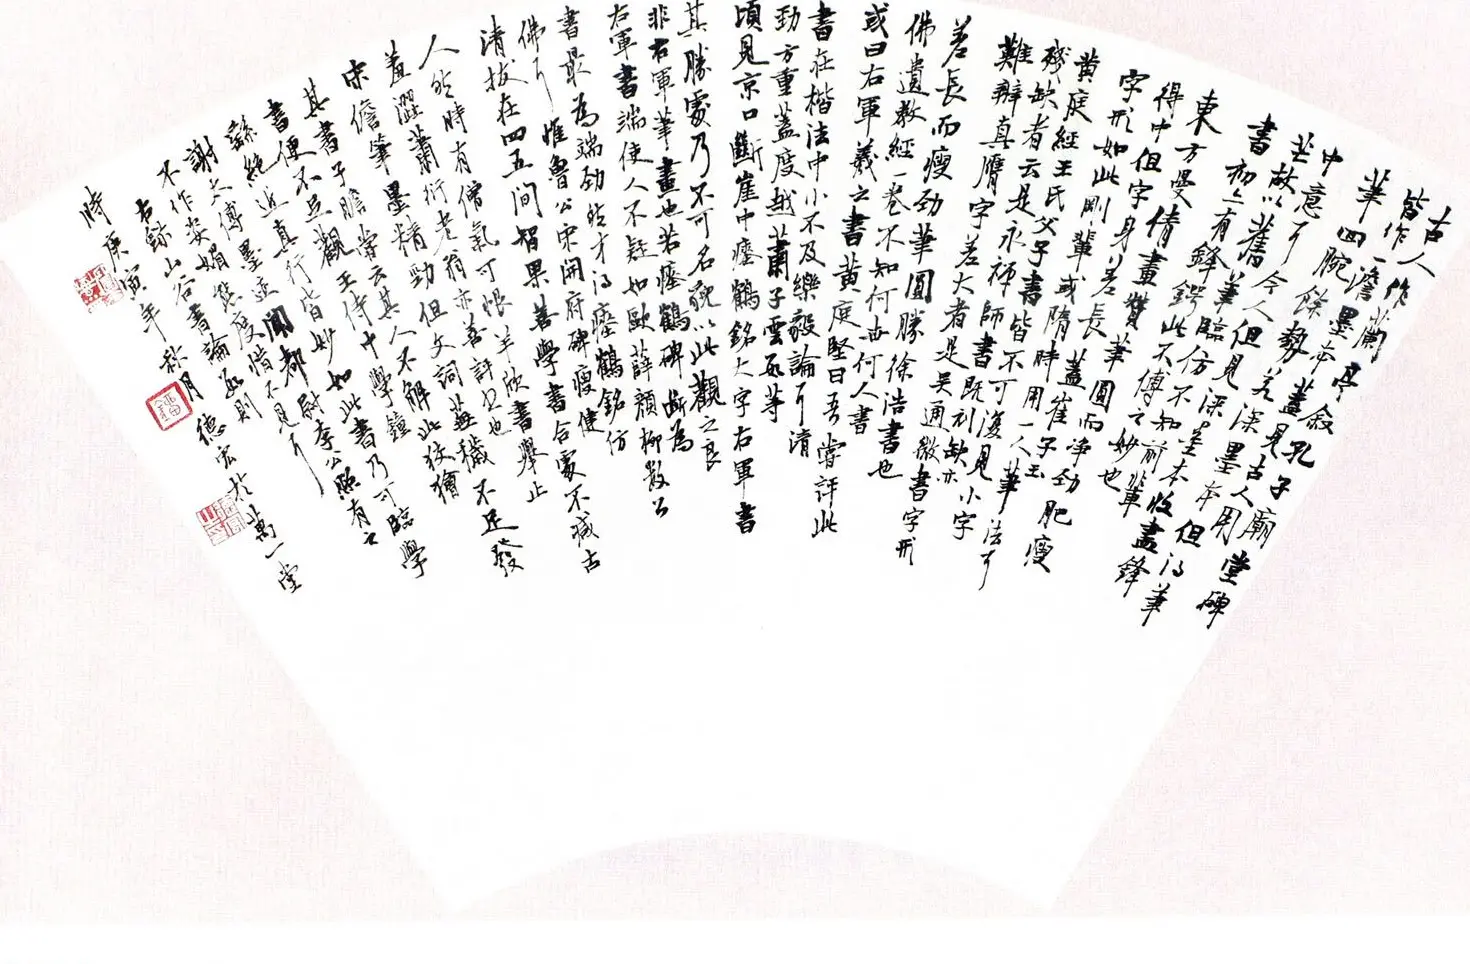 古人作蘭亭敘孔子廟堂碑
皆作一澹墨本蓋見古人用
筆回腕餘勢若深墨本但得筆
中意耳今人但見深墨本收盡鋒
芒故以舊筆臨仿不知前輩
書初亦有鋒鍔此不傳之妙也
東方曼倩畫贊筆圓淨勁肥瘦
得中但字身差長蓋崔子玉
字形如此前輩或隋時用一人筆法耳
黃庭經王氏父子書皆不可復見小字
殘缺者云是永禪師書既刻缺亦
難辨真贗字差大者是吳通微書字形
差長而瘦勁筆圓勝徐浩書也
佛遺教經一卷不知何世何人書
或曰右軍羲之書黃庭堅曰吾嘗評此
書在楷法中小不及樂毅論耳清
勁方重蓋度越蕭子雲數等
頃見京口斷崖中瘞鶴銘大字右軍書
其勝處乃不可名貌以此觀之良
非右軍筆畫也若瘞鶴碑斷為
右軍書端使人不疑如歐薛顏柳數公
書最為端勁然才得瘞鶴銘仿
佛耳惟魯公宋開府碑瘦健
清拔在四五間智果善學書合處不減古
人然時有僧氣可恨羊欣書舉止
羞澀蕭衍老翁亦善評也
宋儋筆墨精勁但文詞蕪穢不足發
其書子瞻嘗云其人不解此狡獪
書便不足觀王侍中學鍾
繇絕近真行皆妙如此書乃可臨學
謝太傅墨迹聞都尉李公照有之
不作姿媚態度惜不見耳
右錄山谷書論
時庚寅年秋月德宏於萬一堂